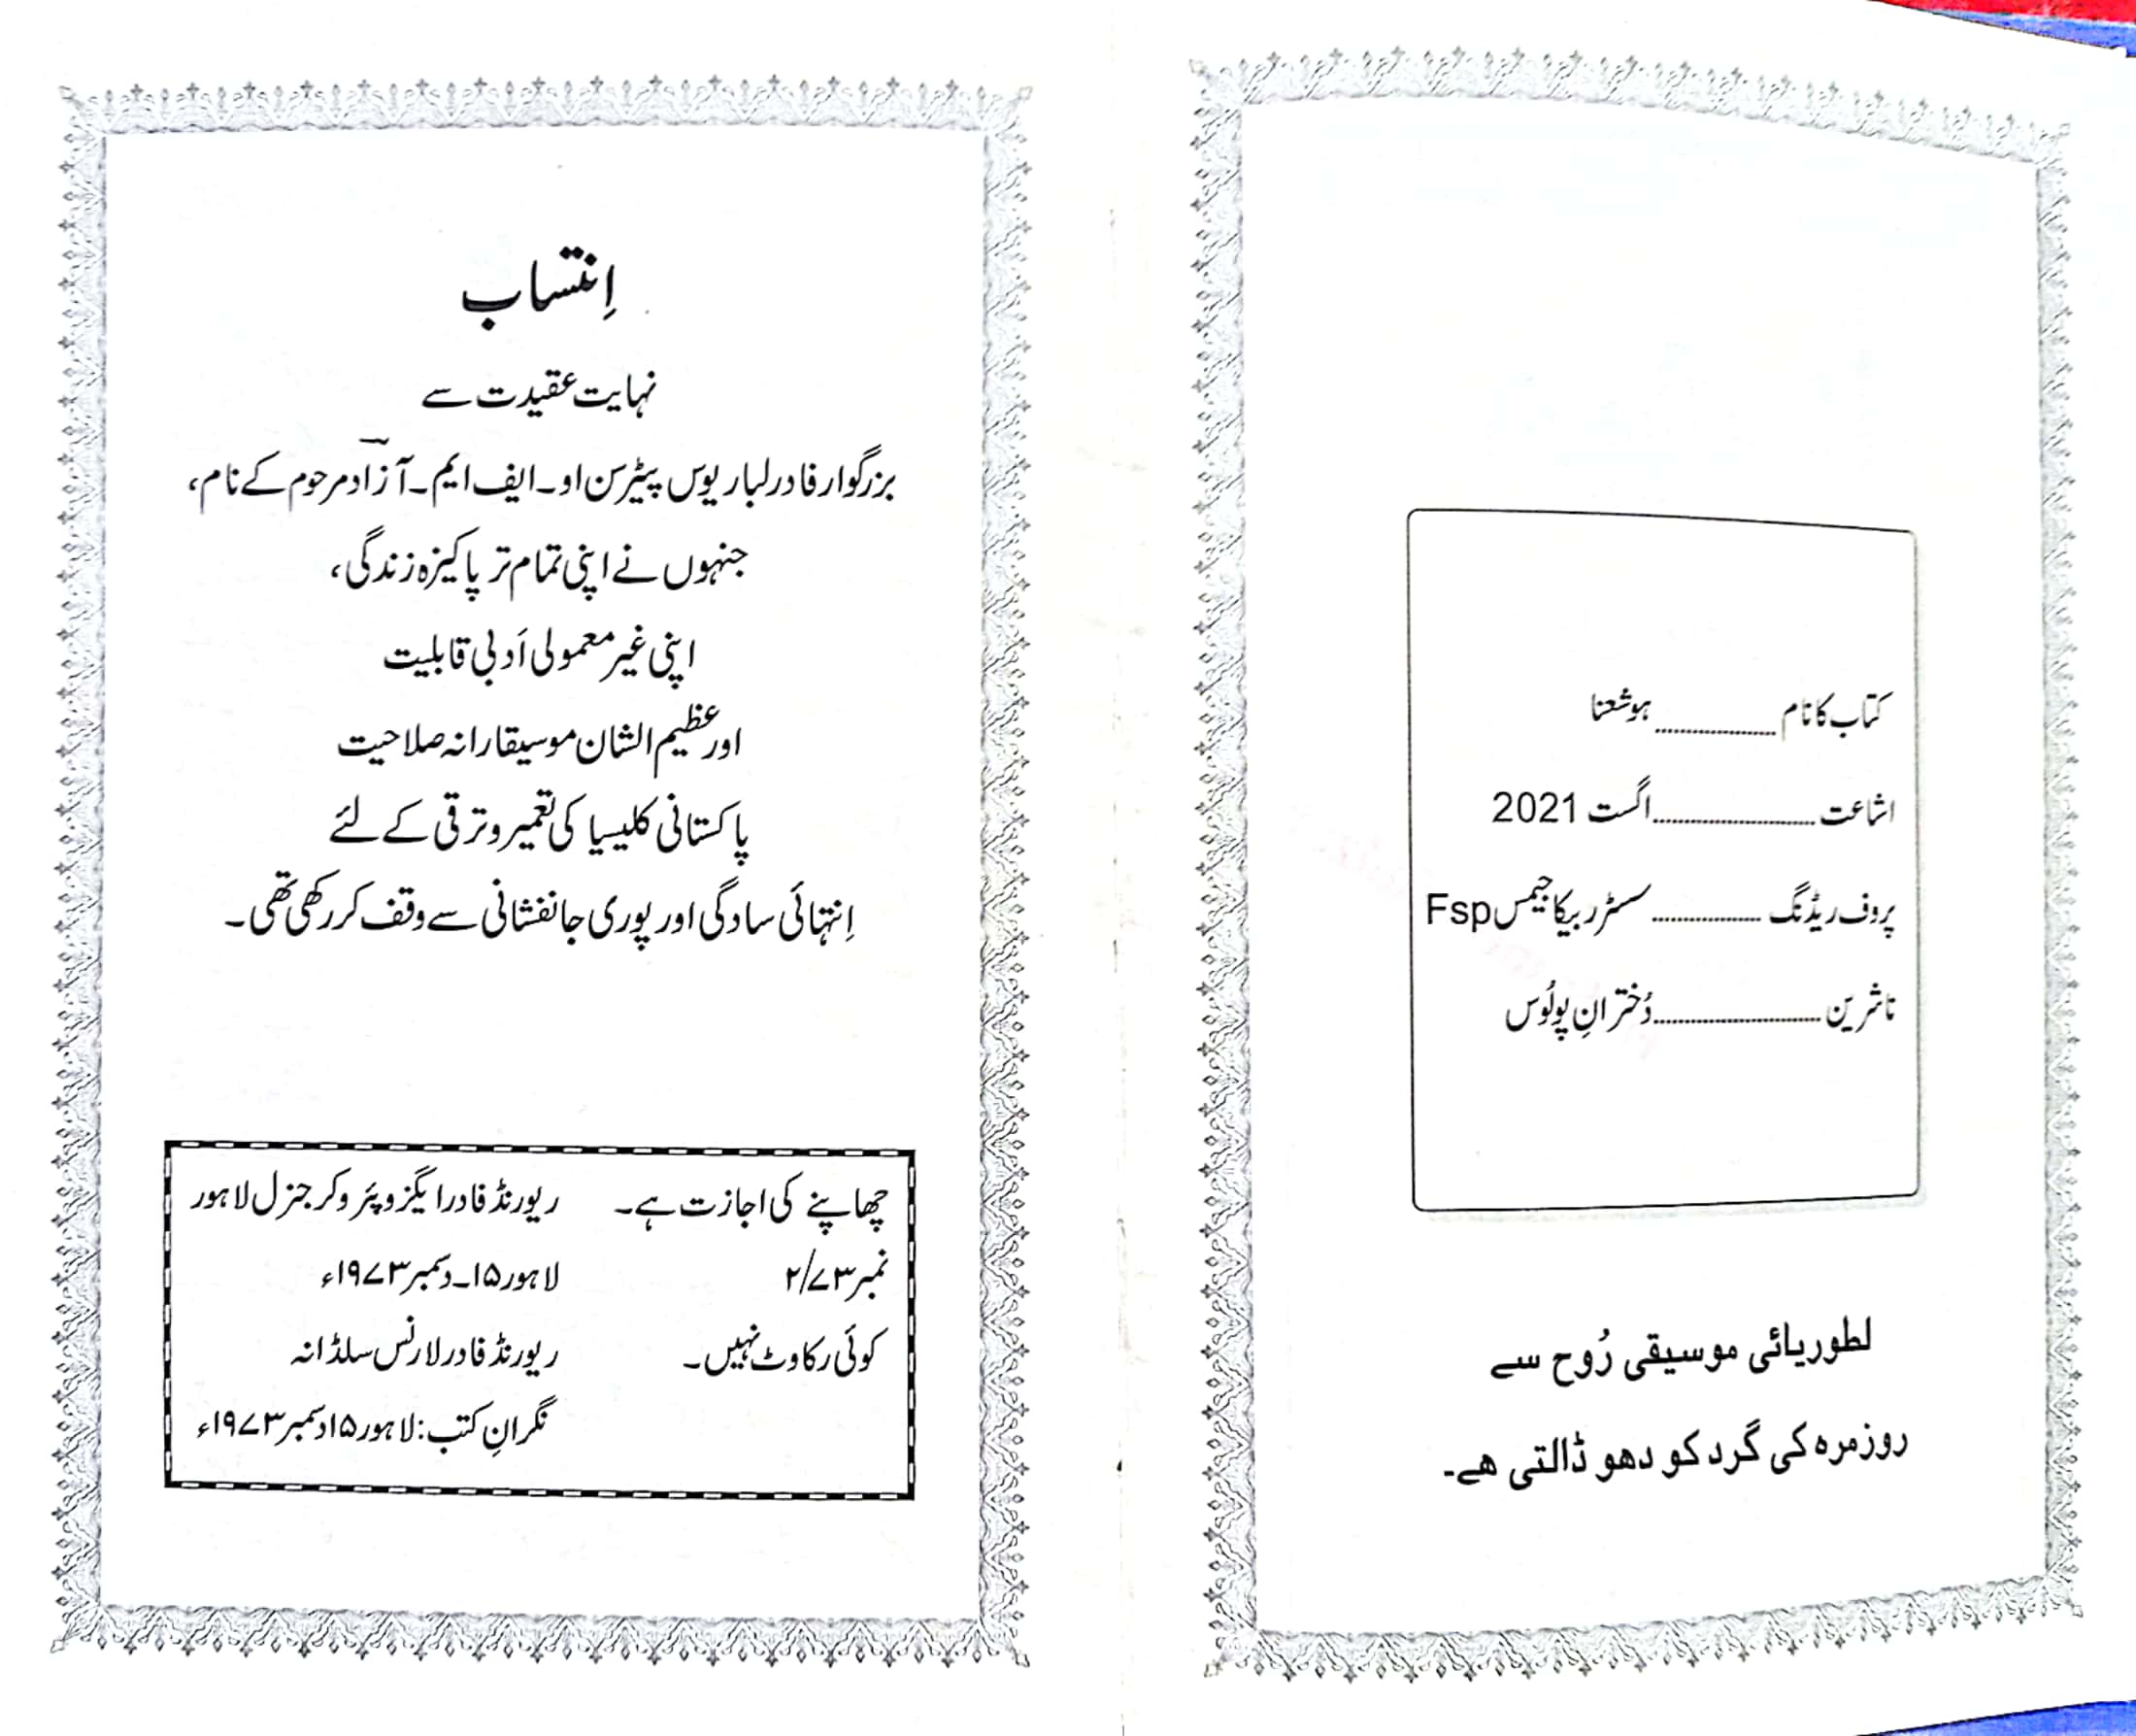 کتاب کا نام ............ ہوشعنا
اشاعت ............ اگست 2021
پروف ریڈنگ ............ سسٹر ربیکا جیمس Fsp
ناشرین ............ دُخترانِ پولُوس
لطوریائی موسیقی رُوح سے
روزمرہ کی گرد کو دھو ڈالتی ھے۔
اِنتساب
نہایت عقیدت سے
بزرگوار فادر لباریوس پیٹرسن او۔ایف ایم۔آزادؔ مرحوم کے نام،
جنہوں نے اپنی تمام تر پاکیزہ زندگی،
اپنی غیر معمولی اَدبی قابلیت
اور عظیم الشان موسیقارانہ صلاحیت
پاکستانی کلیسیا کی تعمیر و ترقی کے لئے
اِنتہائی سادگی اور پوری جانفشانی سے وقف کر رکھی تھی۔
چھاپنے کی اجازت ہے۔ ریورنڈ فادر ایگزوپئر وکر جنرل لاہور
نمبر ۲/۷۳ لاہور ۱۵۔دسمبر ۱۹۷۳ء
کوئی رکاوٹ نہیں۔ ریورنڈ فادر لارنس سلڈانہ
نگرانِ کتب: لاہور ۱۵ دسمبر ۱۹۷۳ء